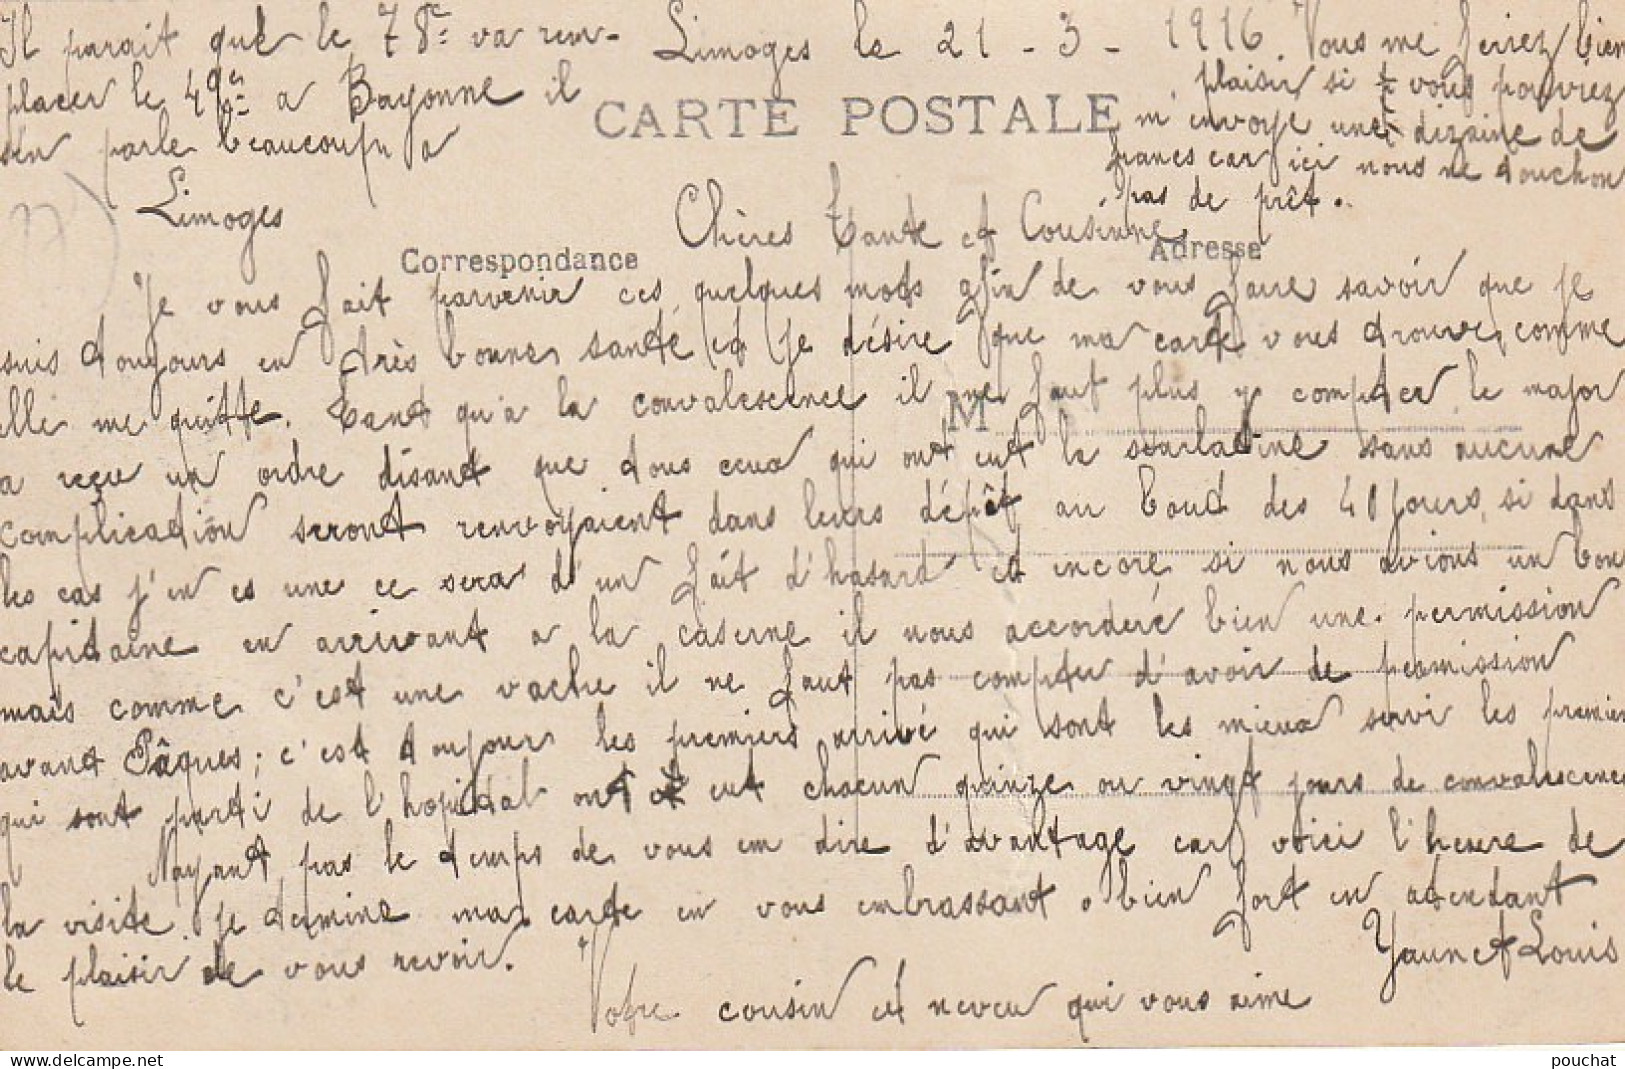 Limoges le 21 - 3 - 1916.
Chères Tante et Cousinne
Je vous fait parvenir ces quelques mots afin de vous faire savoir que je
suis toujours en très bonne santé et je désire que ma carte vous trouve comme
elle me quitte. Tant qu'a la convalescence il me faut plus y compter le major
a reçu un ordre disant que tous ceux qui ont eut la scarlatine sans aucune
complication seront renvoyaient dans leurs dépôt au bout des 40 jours, si dans
les cas j'en es une ce sera d'un fait d'hasard et encore si nous avions un bon
capitaine en arrivant a la caserne il nous accorderé bien une permission
mais comme c'est une vache il ne faut pas compter d'avoir de permission
avant Pâques; c'est toujour les premiers arrivé qui sont les mieux servi les premier
qui sont parti de l'hopital ont eut chacun quinze ou vingt jours de convalescence
Nayant pas le temps de vous en dire d'avantage car voici l'heure de
la visite je termine ma carte en vous embrassant bien fort en attendant
le plaisir de vous revoir.
Votre cousin et neveu qui vous aime
Yaunet Louis
Il parait que le 78e va rem-
placer le 49e a Bayonne il
sen parle beaucoup a
Limoges
Vous me feriez bien
plaisir si vous pouviez
m'envoye une dizaine de
francs car ici nous ne touchon
pas de prêt.
CARTE POSTALE
Correspondance
Adresse
M
pouchat
www.delcampe.net